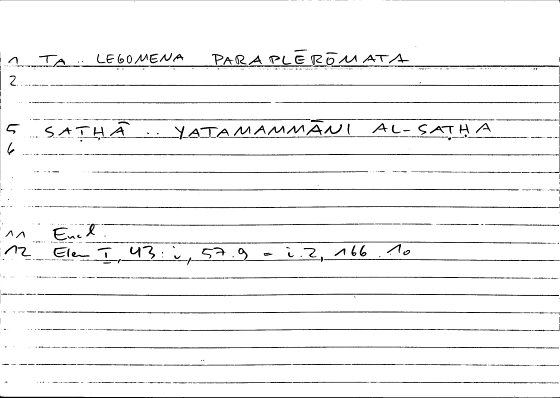 1 TA .. LEGOMENA PARAPLĒRŌMATA
2
5 SAṬḤĀ .. YATAMAMMĀNI AL-SAṬḤA
6
11 Eucl.
12 Elem I, 43: i, 57.9 = i.2, 166.10